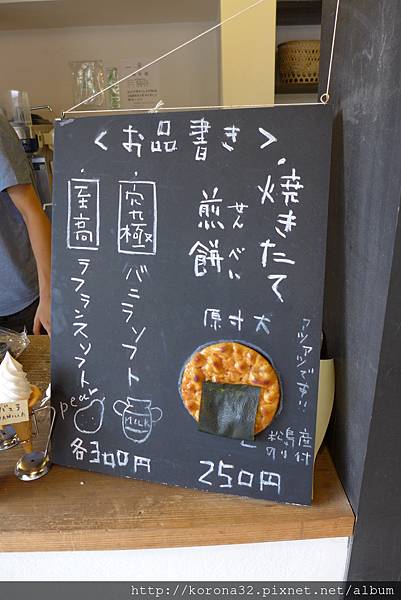 <お品書き>
・焼きたて
煎餅
せんべい
原寸大
アツアツです!!
松島産
のり付
250円
・究極
バニラソフト
MILK
・至高
ラフランスソフト
pear
各300円
バニラ
VANILLA
http://korona32.pixnet.net/album